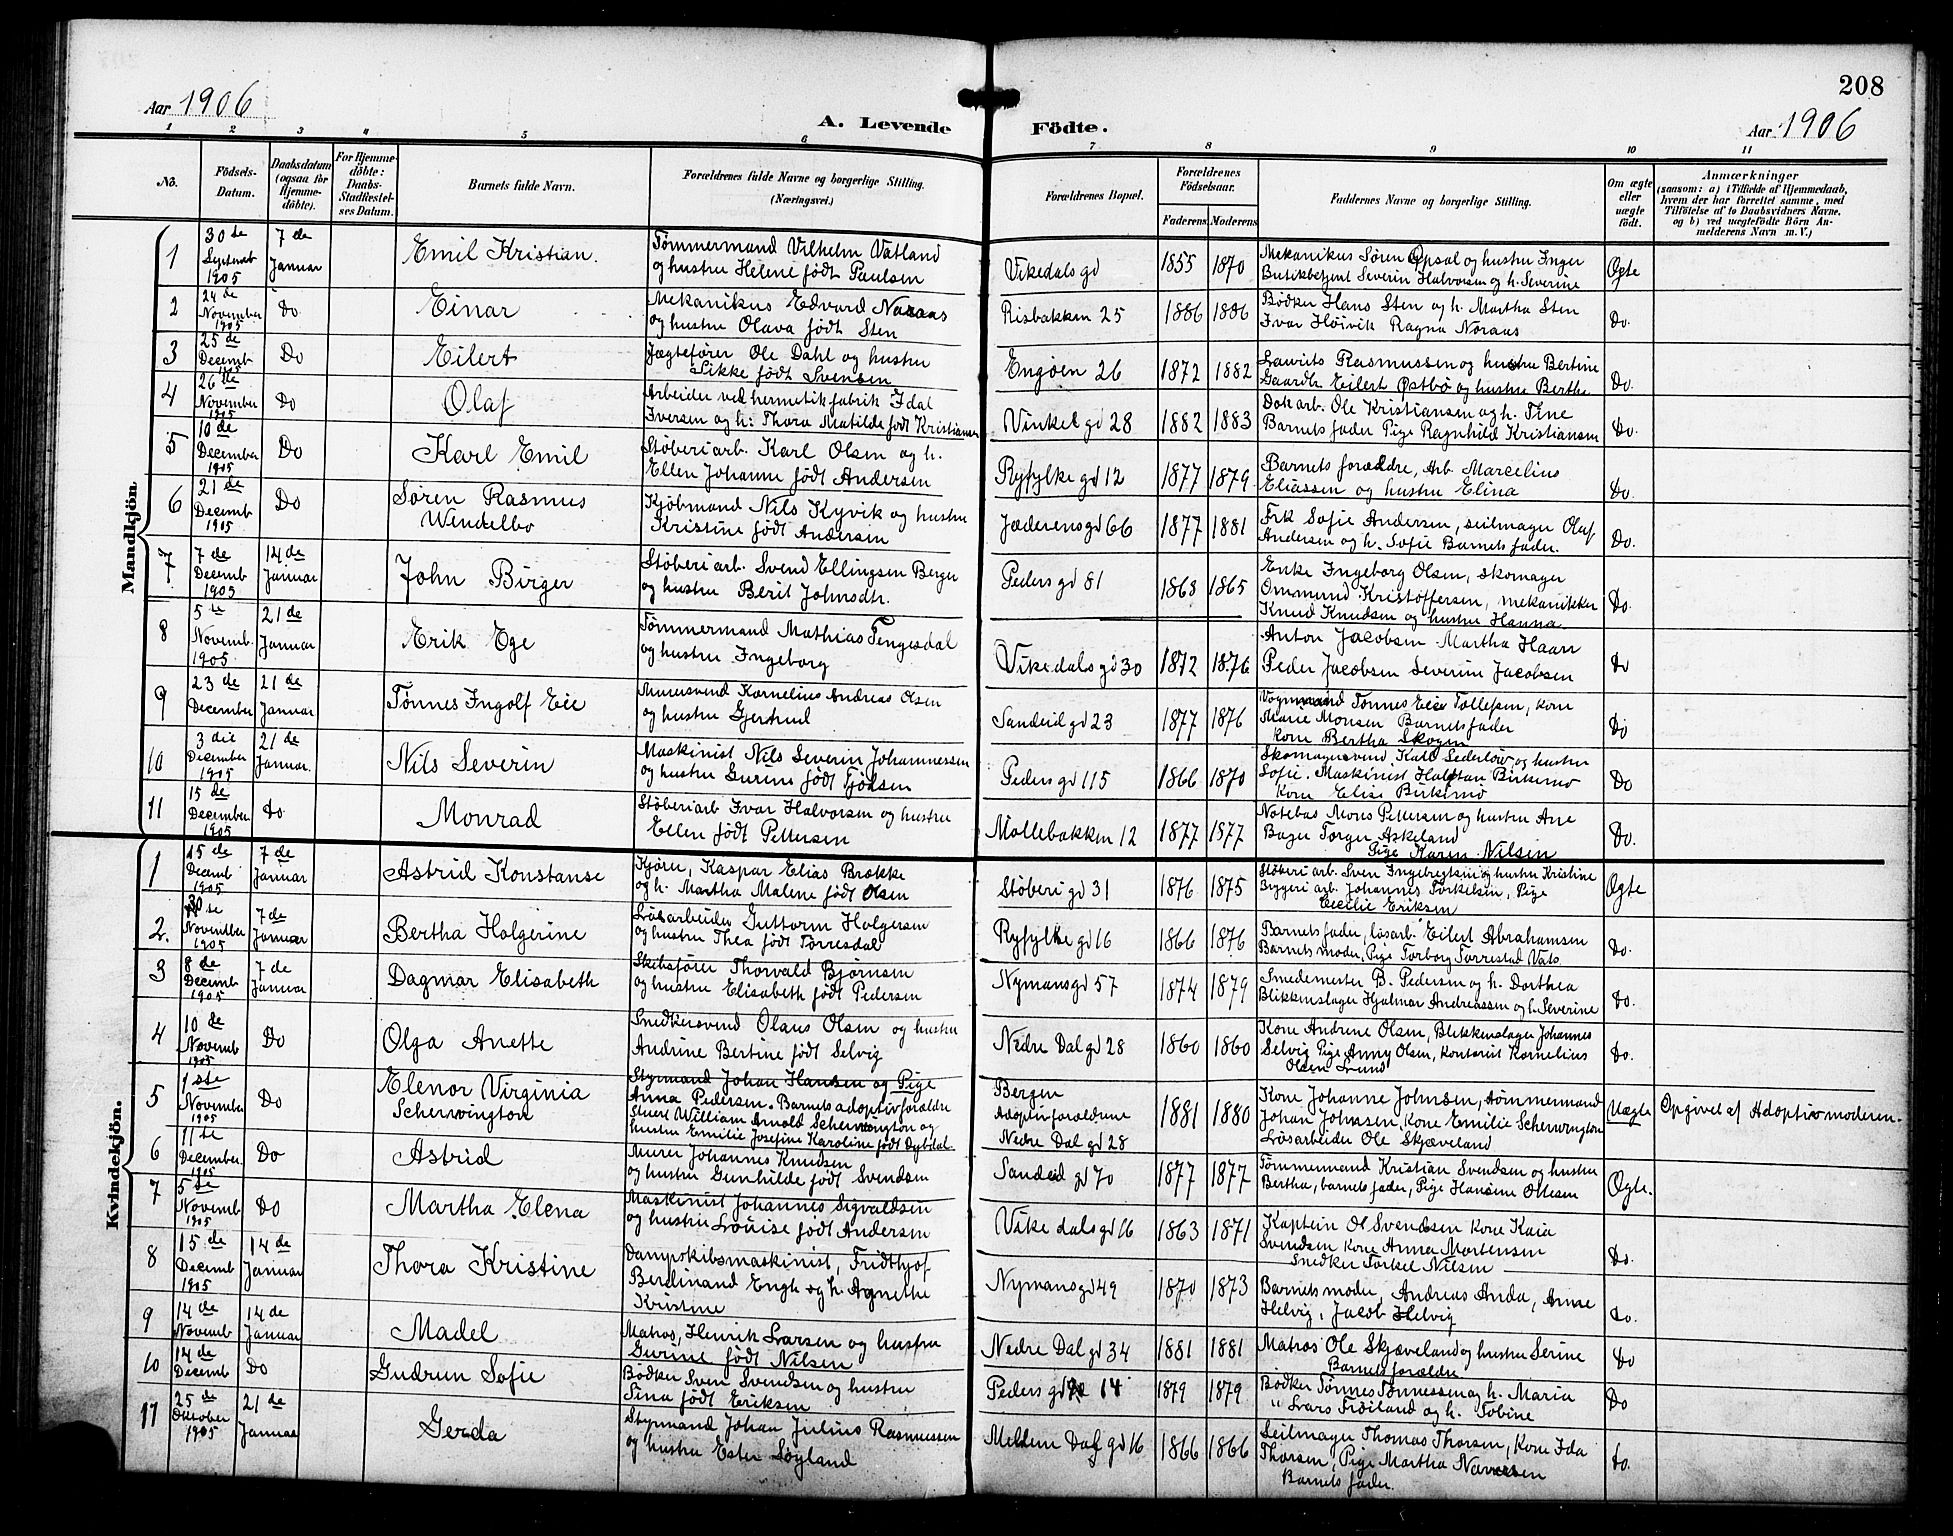 208
Aar 1906
A. Levende Födte.
Aar 1906
1 2 3 4 5 6 7 8 9 10 11
Nö.
Födsels-Datum.
Daabsdatum (ogsaa for Hjemme-döbte).
For Hjemme-döbte: Daabs-Stadfæstel-ses Datum.
Barnets fulde Navn.
Forældrenes fulde Navne og borgerlige Stilling. (Næringsvei.)
Forældrenes Bopæl.
Forældrenes Födselsaar.
Faderens Moderens
Faddernes Navne og borgerlige Stilling.
Om ægte eller uægte født.
Anmærkninger
(saasom: a) i Tilfælde af Hjemmedaab,
hvem der har forrettet samme, med
Tilföielse af to Daabsvidners Navne.
og b) ved uægtefödte Börn An-
melderens Navn m. V.)
Mandkjön.
1 30 de Septemb 1905 7 de Januar Emil Kristian.
Tømmermand Vilhelm Vatland
og hustru Helene født Paulsen
Vikedals gd 1855 1870
Mekanikus Søren Opsal og hustru Inger
Butikbetjent Severin Halvorsen og h. Severine
Ægte
2 24 de November 1905 Do Einar
Mekanikus Edvard Noraas
og hustru Olava født Sten
Risbakken 25 1886 1886
Bødker Hans Sten og h. Martha Sten
Ivar Høivik Ragna Noraas
Do.
3 25 de Decemb 1905 Do Eilert
Jægtefører Ole Dahl og hustru
Sikke født Svensen
Engøen 26 1872 1882
Laurits Rasmussen og hustru Bertine
Gaardbr Eilert Østbø og hustru Berthe
Do.
4 26 de November 1905 Do Olaf
Arbeider ved hermetikfabrik Idal
Iversen og h: Thora Matilde født Kristiansen
Vinkel gd 28 1882 1883
Dokarb. Ole Kristiansen og h. Tine
Barnets fader Pige Ragnhild Kristiansen
Do.
5 10 de December 1905 Do Karl Emil
Støberiarb. Karl Olsen og h.
Ellen Johanne født Andersen
Ryfylke gd 12 1877 1879
Barnets forældre, Arb Marcelius
Eliassen og hustru Elina
Do.
6 21 de Decemb 1905 Do Søren Rasmus Wendelbo
Kjøbmand Nils Kyvik og hustru
Kristine født Andersen
Jæderens gd 66 1877 1881
Frk Sofie Andersen, seilmager Olaf
Andersen og h. Sofie Barnets fader.
Do.
7 7 de Decemb 1905 14 de Januar John Birger
Støberiarb. Svend Ellingsen Berger
og hustru Berit Johnsdtr.
Peders gd 81 1863 1865
Enke Ingeborg Olsen, skomager
Ommund Kristoffersen, mekanikker
Knud Knudsen og hustru Hanna
Do.
8 5 te Novemb. 1905. 21 de Januar Erik Ege
Tømmermand Mathias Tengesdal
og hustru Ingeborg
Vikedals gd 30 1872 1876
Anton Jacobsen Martha Haan
Peder Jacobsen Severine Jacobsen
Do
9 23 de December 21 de Januar Tønnes Ingolf Eie
Murersvend Kornelius Andreas Olsen
og hustru Gjertrud
Sandeid gd 23 1877 1876
Vognmand Tønnes Eie Tollefsen, kone
Marie Monsen Barnets fader
kone Bertha Skogen
Do
10 3 die December 1905 21 de Januar. Nils Severin
Maskinist Nils Severin Johannessen
og hustru Gurine født Tjødsen
Peders gd 115 1866 1870
Skomagersvend Karl Sederlöw og hustru
Sofie. Maskinist Halftan Birkemo
Kone Elise Birkemo
Do
11 15 de December 1905 Do Monrad
Støberiarb Ivar Halvorsen og hustru
Ellen født Pettersen
Møllebakken 12 1877 1877
Notebas Mons Pettersen og hustru Ane
Bager Torger Askeland
Pige Karen Nilsen
Do.
Kvindekjön.
1 15 de Decemb 1905 7 de Januar Astrid Konstanse
Kjører, Kaspar Elias Brække
og h. Martha Malene født Olsen
Støberi gd 31 1876 1875
Støberiarb. Sven Ingebregtsen og hustru Kristine
Bryggeriarb. Johannes Torkelsen, Pige
Cecilie Eriksen
Ægte
2. 30 te November 1905 7 de Januar Bertha Holgerine
Løsarbeider Guttorm Holgersen
og hustru Thea født Torresdal
Ryfylke gd 16 1866 1876
Barnets fader, løsarb. Eilert Abrahamsen
Barnets moder, Pige Torborg Torrestad Vats.
Do.
3 8 de Decemb 1905 7 de Januar Dagmar Elisabeth
Skibsfører Thorvald Bjørnsen
og hustru Elisabeth født Pedersen
Nymans gd 57 1874 1879
Smedemester B. Pedersen og h. Dorthea
Blikkenslager Hjalmar Andreassen og h. Severine
Do.
4 10 de Novemb 1905 Do Olga Anette
Snedkersvend Olaus Olsen og hustru
Andrine Bertine født Selvig
Nedre Dal gd 28 1860 1860
Kone Andrine Olsen, Blikkenslager Johannes
Selvig Pige Anny Olsen, kontorist Kornelius
Olsen Lund
Do.
5 1 ste November 1905 Do Elenor Virginia Scherwington
Styrmand Johan Hansen og Pige
Anna Pedersen. Barnets adoptivforældre
Stuert William Arnold Scherwington og
hustru Emilie Josefine Karoline født Dybdal.
Bergen
Adoptivforældrene
Nedre Dal gd 28 1881 1880
Kone Johanne Johnsen, tømmermand
Johan Johnsen, Kone Emilie Scherwington
Løsarbeider Ole Skjæveland
Uægte Opgivet af Adoptivmoderen.
6 11 te December. 1905 Do Astrid
Murer Johannes Knudsen
og hustru Gunhilde født Svendsen
Sandeid gd 70 1877 1877
Tømmermand Kristian Svendsen og hustru
Bertha, barnets fader, Pige Hansine Ottesen
Ægte.
7 5 te Novemb 1905 Do Martha Elena
Maskinist Johannes Sigvaldsen
og hustru Louise født Andersen
Vikedals gd 16 1863 1871
Kaptein Ol Svendsen kone Kaia
Svendsen kone Anna Mortensen
Snedker Torkel Nilsen
Do.
8 15 de Decemb 1905 14 de Januar Thora Kristine
Dampskibsmaskinist, Fridthjof
Berdinand Engh og h. Agnethe
Kristine
Nymans gd 49 1870 1873
Barnets moder, Andreas Anda, Anne
Helvig, Jacob Helvig
Do.
9 14 de Novemb 14 de Januar Madel
Matros, Henrik Larsen og hustru
Gurine født Nilsen
Nedre Dal gd 34 1881 1881
Matros Ole Skjæveland og hustru Serine
Barnets forældre
Do
10 14 de Decemb Do Gudrun Sofie
Bødker Sven Svendsen og hustru
Tina født Eriksen
Peders gd 14 1879 1879
Bødker Tønnes Tønnessen og h. Maria
" Lars Fidiland og h. Tobine
Do
11 25 de Oktober 1905 21 de Januar Gerda
Styrmand Johan Julius Rasmussen
og hustru Ester Søyland
Mellem Dal gd 16 1866 1866
Seilmager Thomas Thorsen, Kone Ida
Thorsen, Pige Martha Naversen
Barnets fader.
Do.